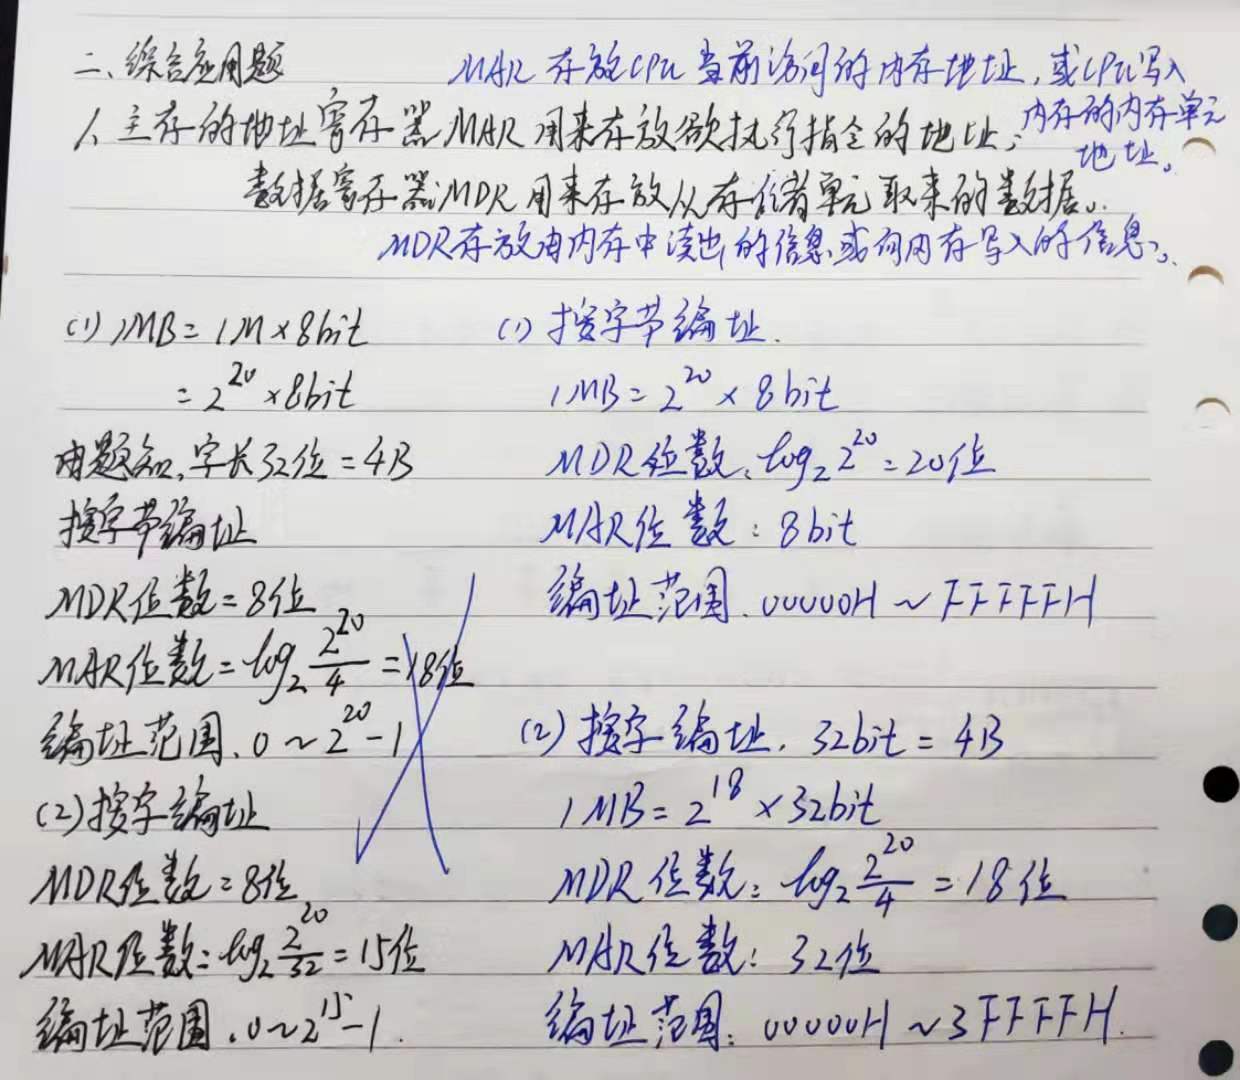 二、综合应用题
MAR存放CPU当前访问的内存地址,或CPU写入
内存的内存单元
地址。
1、主存的地址寄存器MAR用来存放欲执行指令的地址;
数据寄存器MDR用来存放从存储单元取来的数据。
MDR存放由内存中读出的信息或向内存写入的信息。
(1) 1MB = 1M×8bit
= 2^20 ×8bit
由题知,字长32位=4B
按字节编址
MDR位数=8位
MAR位数=log₂ 2^20/4 =18位
编址范围.0~2^20-1
(2)按字编址
MDR位数=8位
MAR位数=log₂ 2^20/32 =15位
编址范围.0~2^15-1.
(1) 按字节编址.
1MB=2^20 × 8bit
MDR位数:log₂2^20=20位
MAR位数:8bit
编址范围.00000H~FFFFFH
(2)按字编址. 32bit=4B
1MB=2^18 ×32bit
MDR位数:log₂ 2^20/4 =18位
MAR位数:32位
编址范围:00000H~3FFFFH.